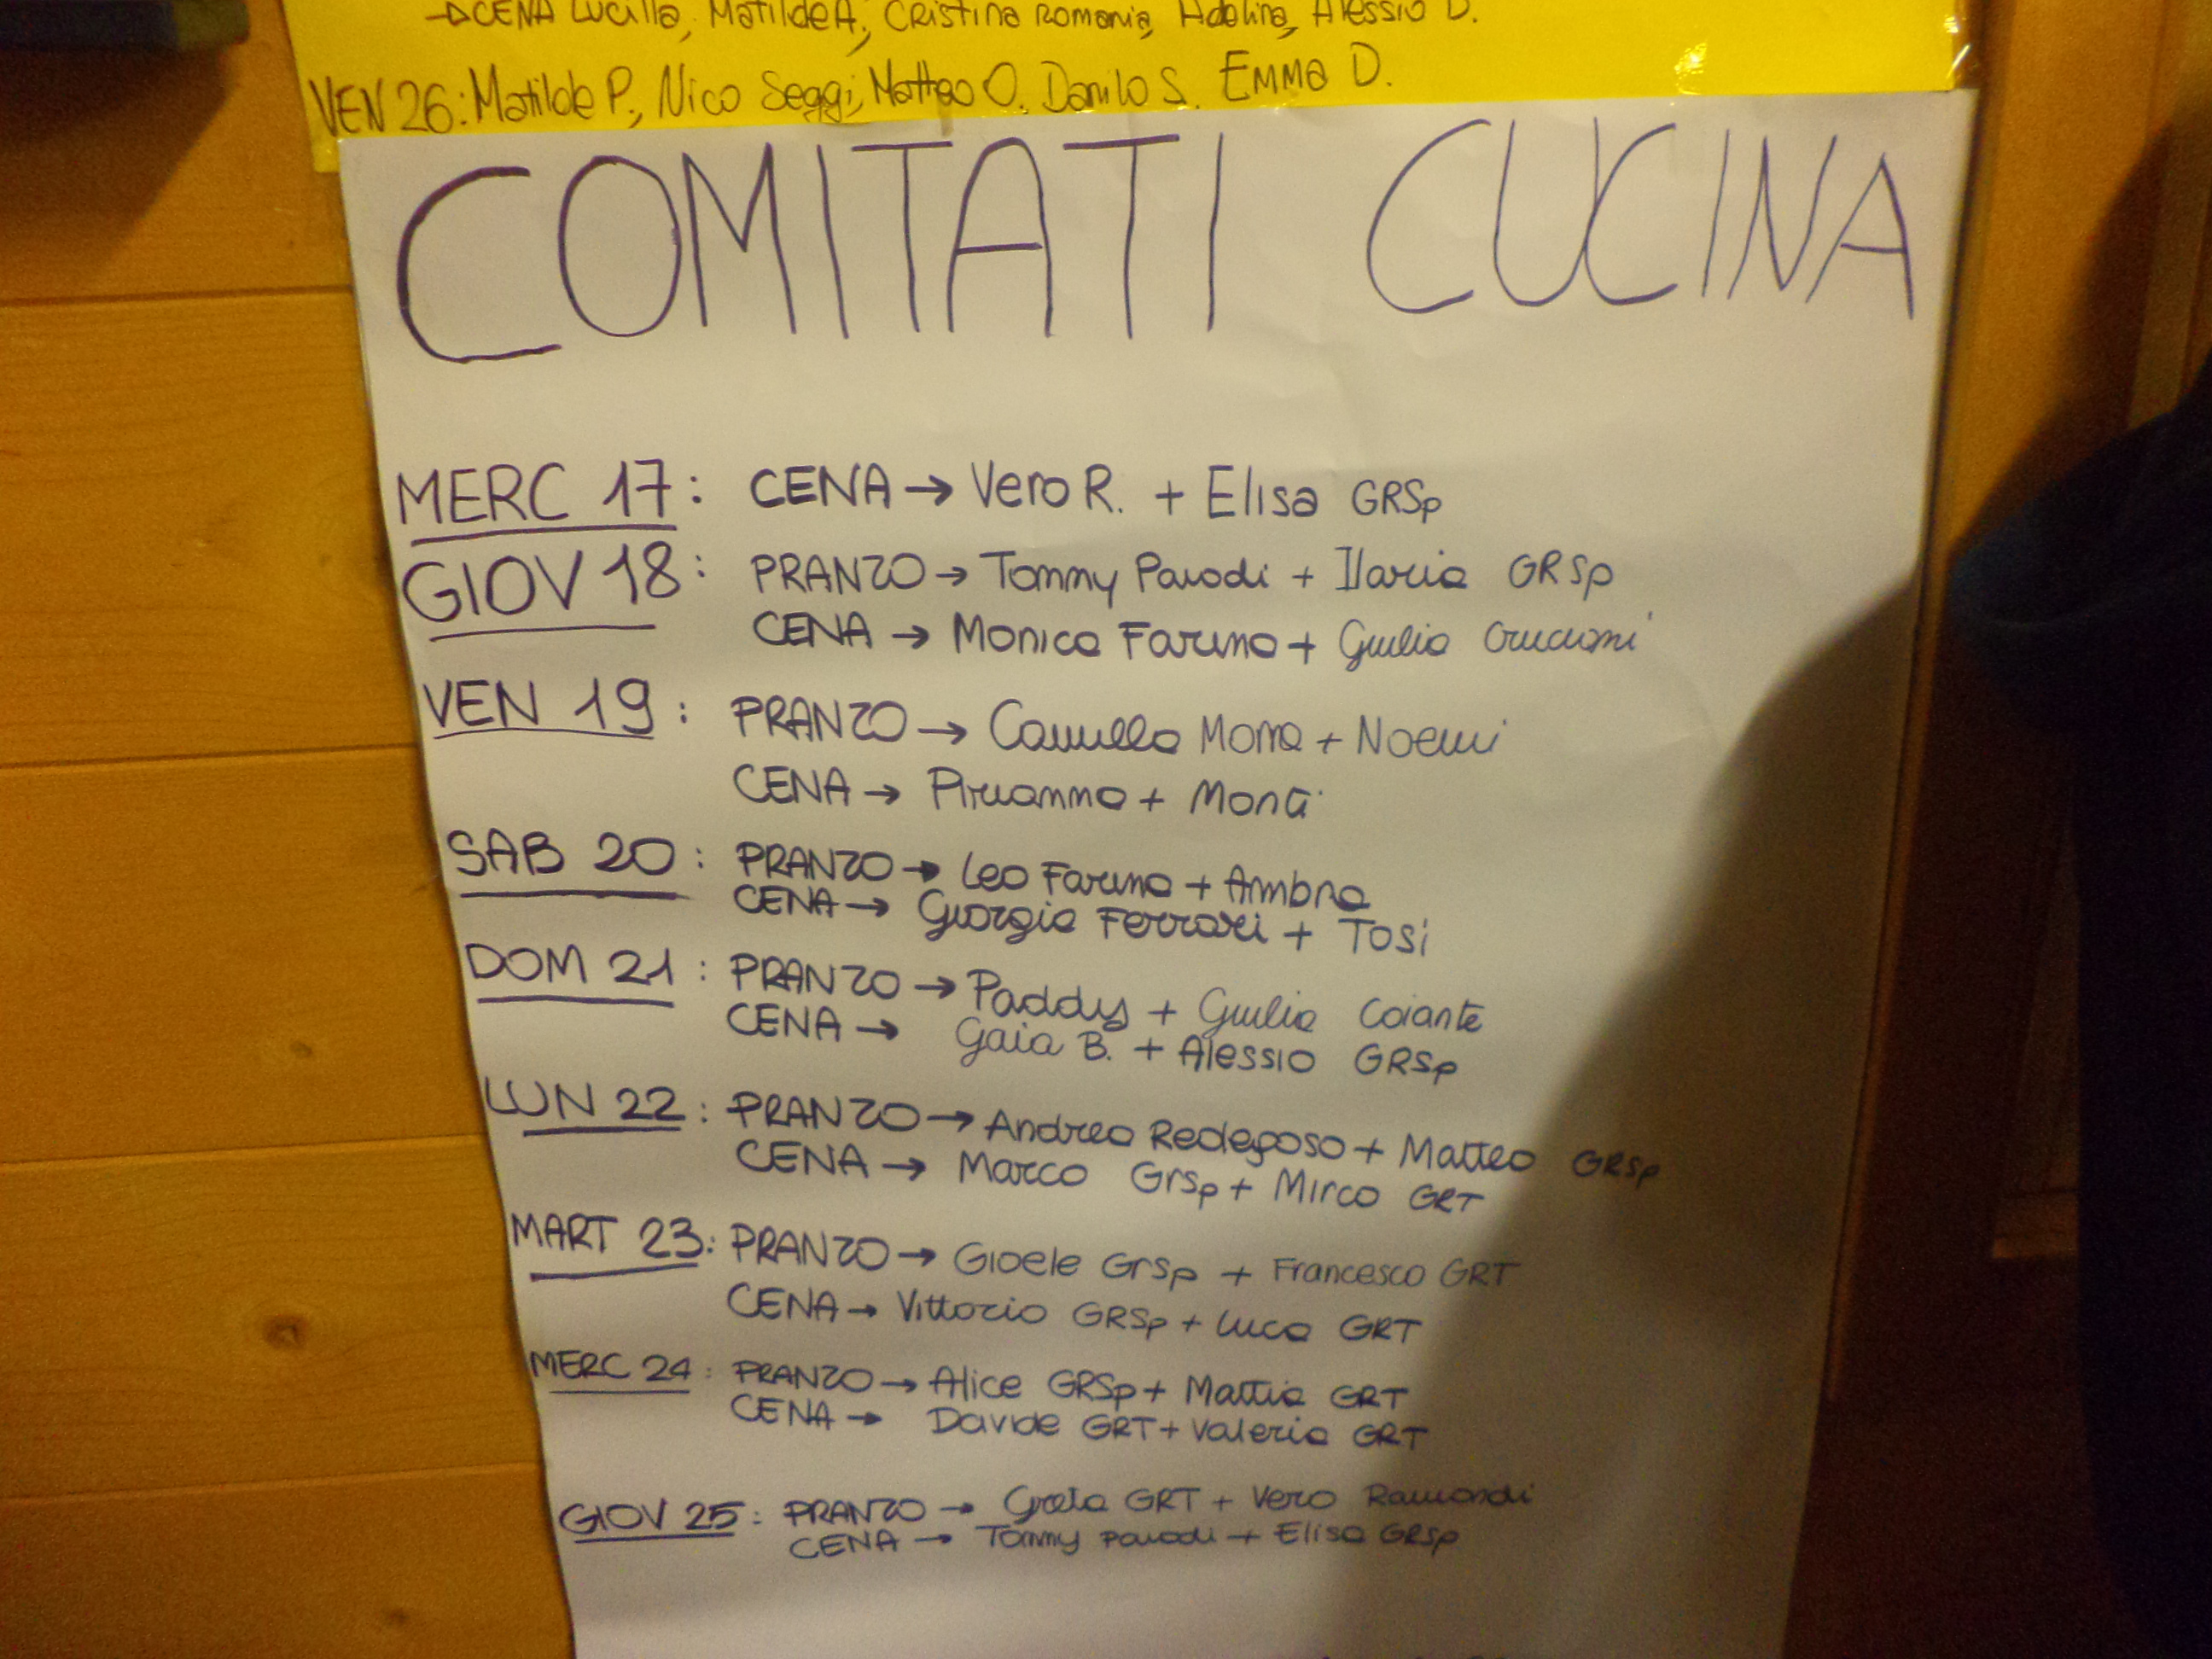 → CENA Lucilla, Matilde A., Cristina Romania, Adelina, Alessio D.
VEN 26: Matilde P., Nico Seggi, Matteo O. Danilo S. EMMA D.
COMITATI CUCINA
MERC 17: CENA → Vero R. + Elisa GRSp
GIOV 18: PRANZO → Tommy Parodi + Ilaria GRSp
CENA → Monica Farina + Giulia
VEN 19: PRANZO → Camilla Morra + Noemi
CENA → + Monti
SAB 20: PRANZO → Leo Farina + Ambra
CENA → Giorgia Ferrari + Tosi
DOM 21: PRANZO → Paddy + Giulia Coiante
CENA → Gaia B. + Alessio GRSp
LUN 22: PRANZO → Andrea Redegoso + Matteo GRSp
CENA → Marco Grsp + Mirco GRT
MART 23: PRANZO → Gioele Grsp + Francesco GRT
CENA → Vittorio GRSp + Luca GRT
MERC 24: PRANZO → Alice GRSp + Mattia GRT
CENA → Davide GRT + Valeria GRT
GIOV 25: PRANZO → Greta GRT + Vero Raimondi
CENA → Tommy Parodi + Elisa GRSp